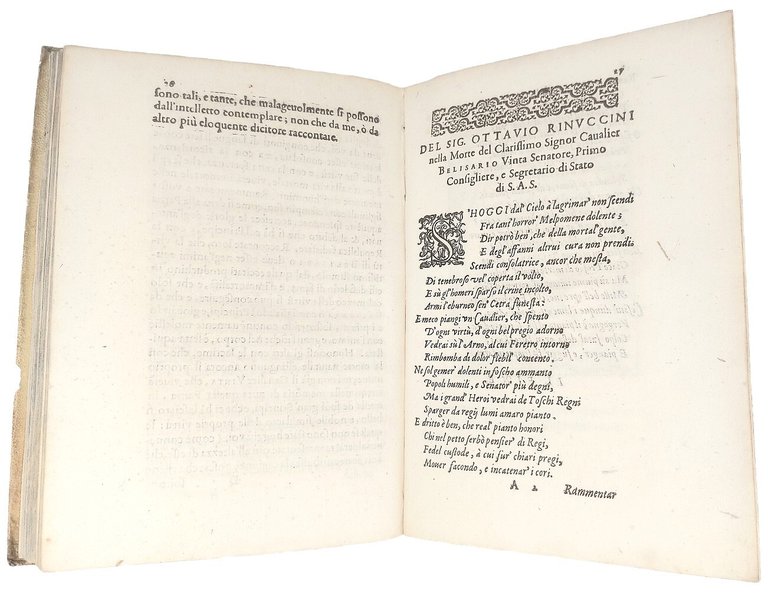 sono tali, e tante, che malageuolmente si possono
dall'intelletto contemplare; non che da me, ò da
altro più eloquente dicitore raccontate.
27
DEL SIG. OTTAVIO RINVCCINI
nella Morte del Clarissimo Signor Caualier
BELISARIO Vinta Senatore, Primo
Consigliere, e Segretario di Stato
di S.A.S.
S'HOGGI dal Cielo à lagrimar' non scendi
Fra tant' horror' Melpomene dolente;
Dir potrò ben', che della mortal' gente,
E degl' affanni altrui cura non prendi.
Scendi consolatrice, ancor che mesta,
Di tenebroso vel' coperta il volto,
E sù gl' homeri sparso il crine incolto,
Armi l'eburneo sen' Cetra funesta:
E meco piangi vn Caualier, che spento
D'ogni virtù, d'ogni bel pregio adorno
Vedrai sù l'Arno, al cui Feretro intorno
Rimbomba di dolor flebil' concento.
Ne sol gemer' dolenti in fosco ammanto
Popoli humili, e Senator' più degni,
Ma i grand' Heroi vedrai de Toschi Regni
Sparger da regij lumi amaro pianto.
E dritto è ben, che real' pianto honori
Chi nel petto serbò pensier' di Regi,
Fedel custode, à cui fur' chiari pregi,
Mouer facondo, e incatenar' i cori.
A 2 Rammentar